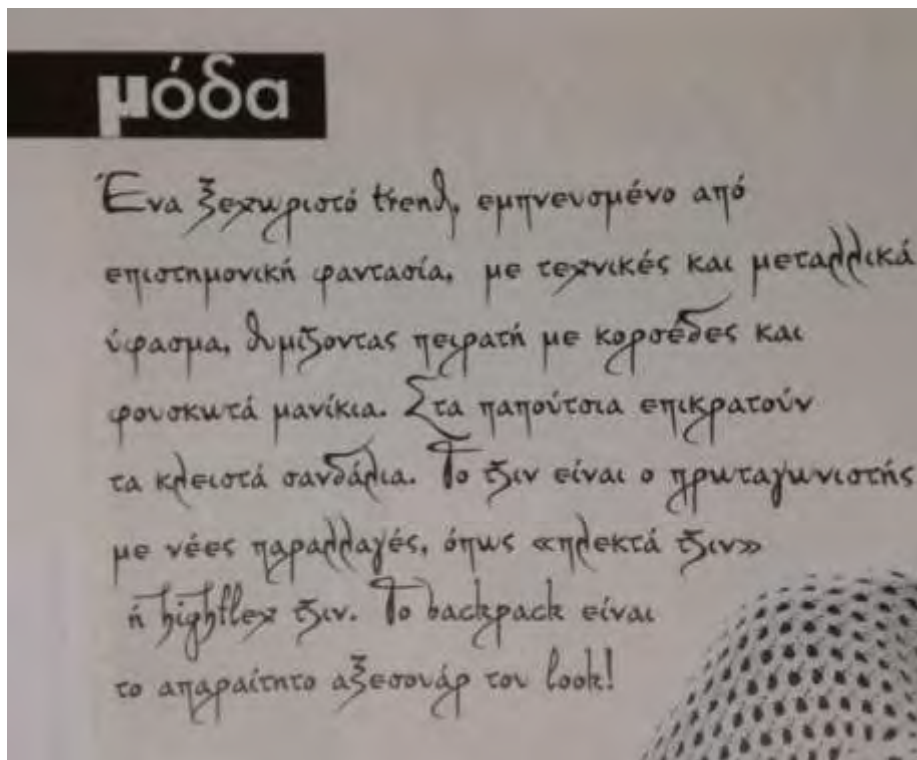 μόδα
Ένα ξεχωριστό trend, εμπνευσμένο από
επιστημονική φαντασία, με τεχνικές και μεταλλικά
ύφασμα, θυμίζοντας πειρατή με κορσέδες και
φουσκωτά μανίκια. Στα παπούτσια επικρατούν
τα κλειστά σανδάλια. Το τζιν είναι ο πρωταγωνιστής
με νέες παραλλαγές, όπως «πλεκτά τζιν»
ή highflex τζιν. Το backpack είναι
το απαραίτητο αξεσουάρ του look!